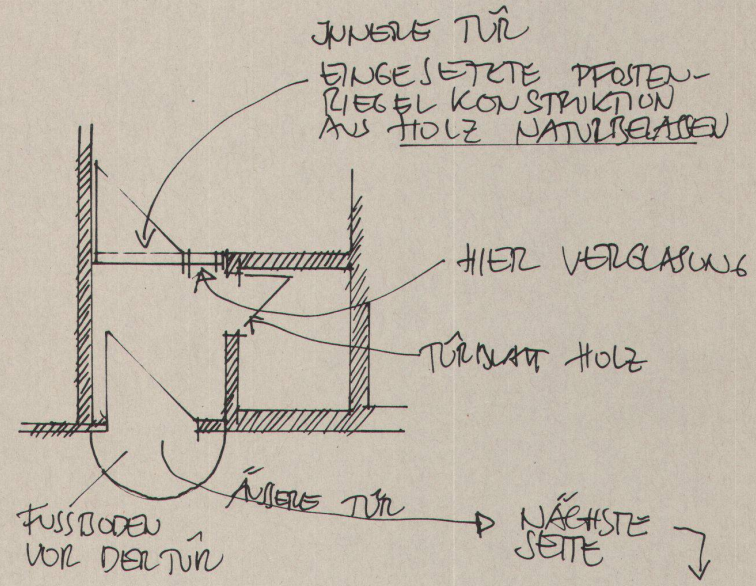 INNERE TÜR
EINGESETZTE PFOSTEN-
RIEGEL KONSTRUKTION
AUS HOLZ NATURBELASSEN
HIER VERGLASUNG
TÜRBLATT HOLZ
ÄUßERE TÜR
FUSSBODEN
VOR DER TÜR
NÄCHSTE
SEITE